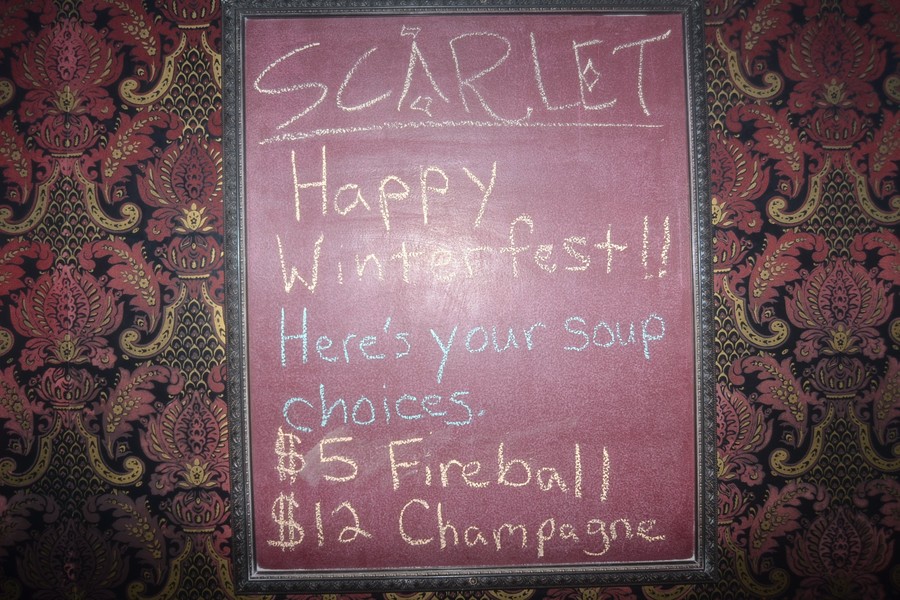 SCARLET
Happy
Winterfest!!
Here's your soup
choices.
$5 Fireball
$12 Champagne